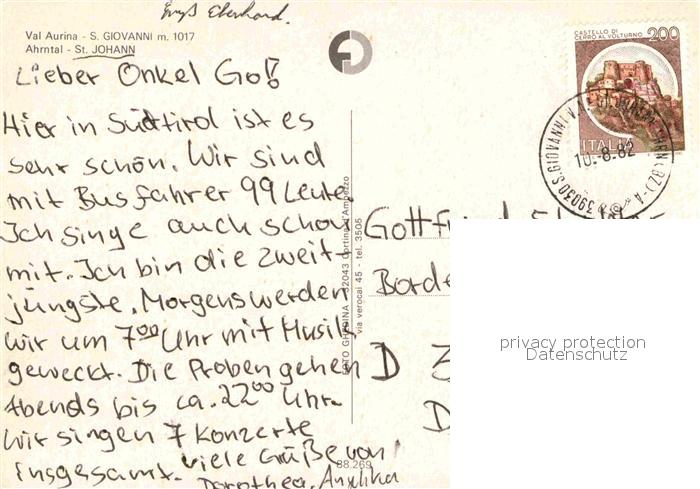 Gruß Eberhard.
Val Aurina - S. GIOVANNI m. 1017
Ahrntal - St. JOHANN
Lieber Onkel Go!
Hier in Südtirol ist es
sehr schön. Wir sind
mit Busfahrer 99 Leute.
Ich singe auch schon
mit. Ich bin die zweit-
jüngste. Morgens werden
wir um 700 Uhr mit Musik
geweckt. Die Proben gehen
Abends bis ca. 2200 Uhr.
Wir singen 7 Konzerte
insgesamt. Viele Grüße von
Dorothea, Annika
FOTO GHEDINA - 32043 Cortina d'Ampezzo
via verocai 45 - tel. 3505
88.269
CASTELLO DI
CERRO AL VOLTURNO 200
ITALIA
10.-8.82
39030 S. GIOVANNI (BZ) - A
D
privacy protection
Datenschutz